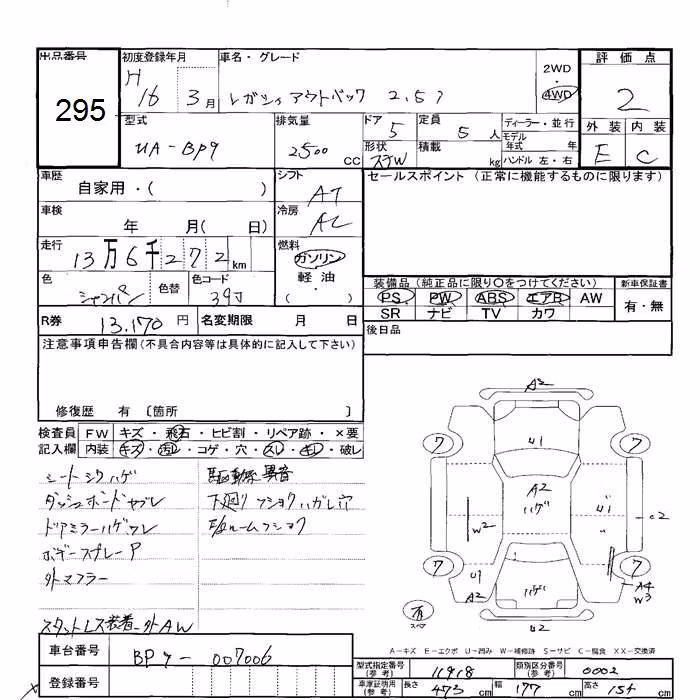 出品番号
295
初度登録年月
H 16 3月
車名・グレード
レガシィ アウトバック 2.5i
2WD
4WD
評価点
2
型式
UA-BP9
排気量
2500 cc
ドア
5
定員
5 人
ディーラー・並行
モデル年式 年
ハンドル 左・右
形状
積載 kg
外装 内装
E C
車歴
自家用・( )
シフト
AT
セールスポイント (正常に機能するものに限ります)
車検
年 月( 日)
冷房
AC
走行
13万6千272km
燃料
ガソリン
軽油
( )
色
シャンパン
色替
色コード
39J
装備品 (純正品に限り○をつけてください)
PS PW ABS エアB AW
SR ナビ TV カワ
新車保証書
有・無
R券
13,170 円
名変期限 月 日
後日品
注意事項申告欄 (不具合内容等は具体的に記入して下さい)
修復歴 有 〔箇所 〕
検査員記入欄
FW キズ・飛石・ヒビ割・リペア跡・×要
内装 キズ・汚レ・コゲ・穴・スレ・キレ・破レ
シートシワハゲ
駆動系異音
ダッシュボードヤブレ
下廻りフショクハガレ穴
ドアミラーハゲワレ
ボデースプレーP
外マフラー
スタットレス装着-外AW
A2
7 7
U1
A2
ハゲ
W2
C2
7 7
U1
A2
ハゲ
A4
W3
有
スペア
U2
A-キズ E-エクボ U-凹み W-補修跡 S-サビ C-腐食 XX-交換済
車台番号
BP9-007006
登録番号
型式指定番号 (参考)
11918
類別区分番号 (参考)
0002
車庫証明用 (参考)
長さ 473 cm 幅 177 cm 高さ 154 cm